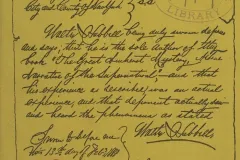 City and County of            } S.S.
LIBRARY
Walter Hubbell being duly sworn deposes
and says, that he is the sole author of the
book "The Great Amherst Mystery" a True
Narrative of the Supernatural; and that
his experience as described was an actual
experience, and that deponent actually saw
and heard the phenomena as stated
Sworn to before me
this 13 day of Feb, 188
Walter Hubbell